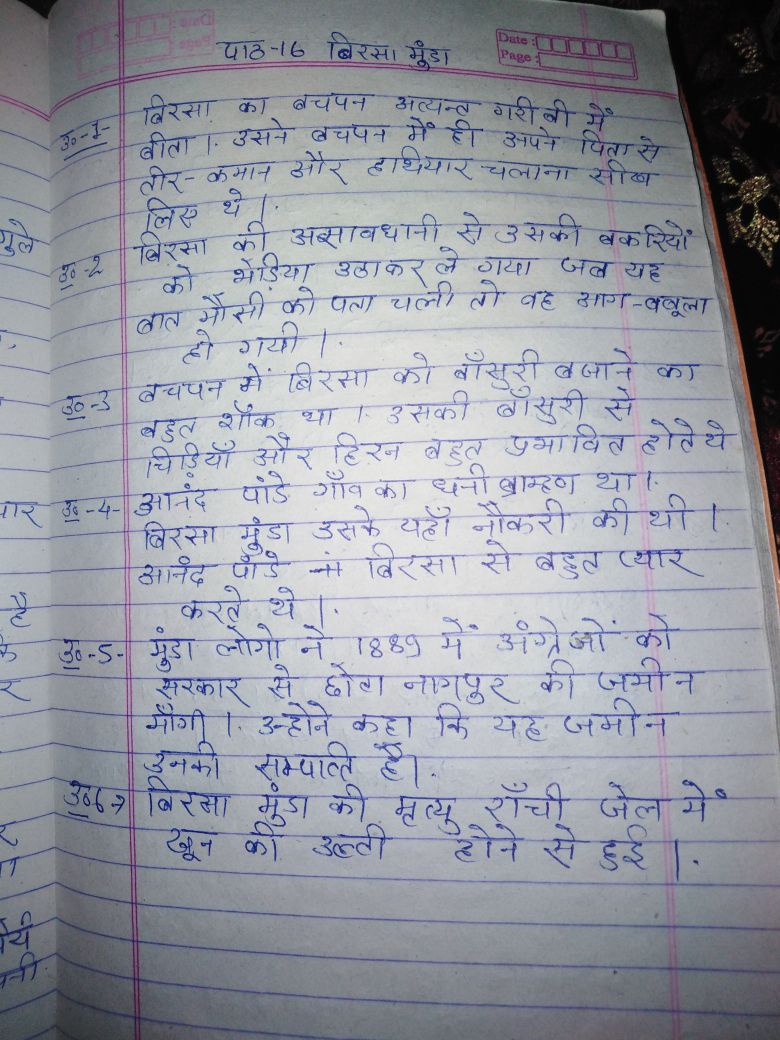 पाठ-16 बिरसा मुंडा
Date :
Page :
उ०-1- बिरसा का बचपन अत्यन्त गरीबी में
बीता। उसने बचपन में ही अपने पिता से
तीर-कमान और हाथियार चलाना सीख
लिए थे।
उ०-2 बिरसा की असावधानी से उसकी बकरियों
को भेड़िया उठाकर ले गया जब यह
बात मौसी को पता चली तो वह आग-बबूला
हो गयी।
उ०-3 बचपन में बिरसा को बाँसुरी बजाने का
बहुत शौक था। उसकी बाँसुरी से
चिड़ियाँ और हिरन बहुत प्रभावित होते थे
उ०-4- आनंद पांडे गाँव का धनी ब्राम्हण था।
बिरसा मुंडा उसके यहाँ नौकरी की थी।
आनंद पाँडे बिरसा से बहुत प्यार
करते थे।
उ०-5- मुंडा लोगो ने 1889 में अंग्रेजों को
सरकार से छोटा नागपुर की जमीन
माँगी। उन्होने कहा कि यह जमीन
उनकी सम्पाति है।
उ०6→ बिरसा मुंडा की मृत्यु राँची जेल में
खून की उल्टी होने से हुई।